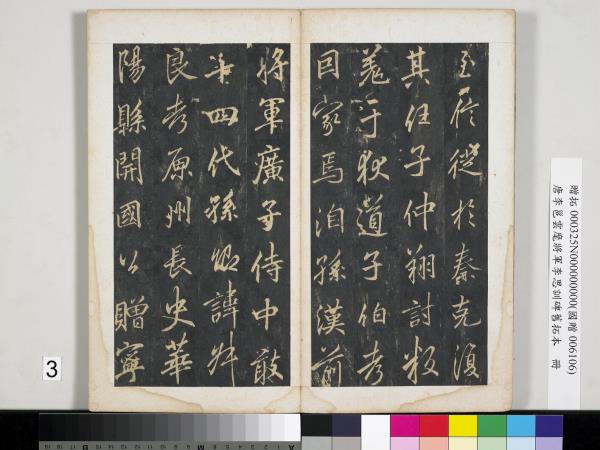 至信徙於秦克復
其任子仲翔討叛
羌于狄道子伯考
因家焉洎孫漢前
將軍廣子侍中敢
十四代孫
諱
良考原州長史華
陽縣開國公贈寧
贈拓 000325N000000000(國贈 006106)
唐李邕雲麾將軍李思訓碑舊拓本 冊
3